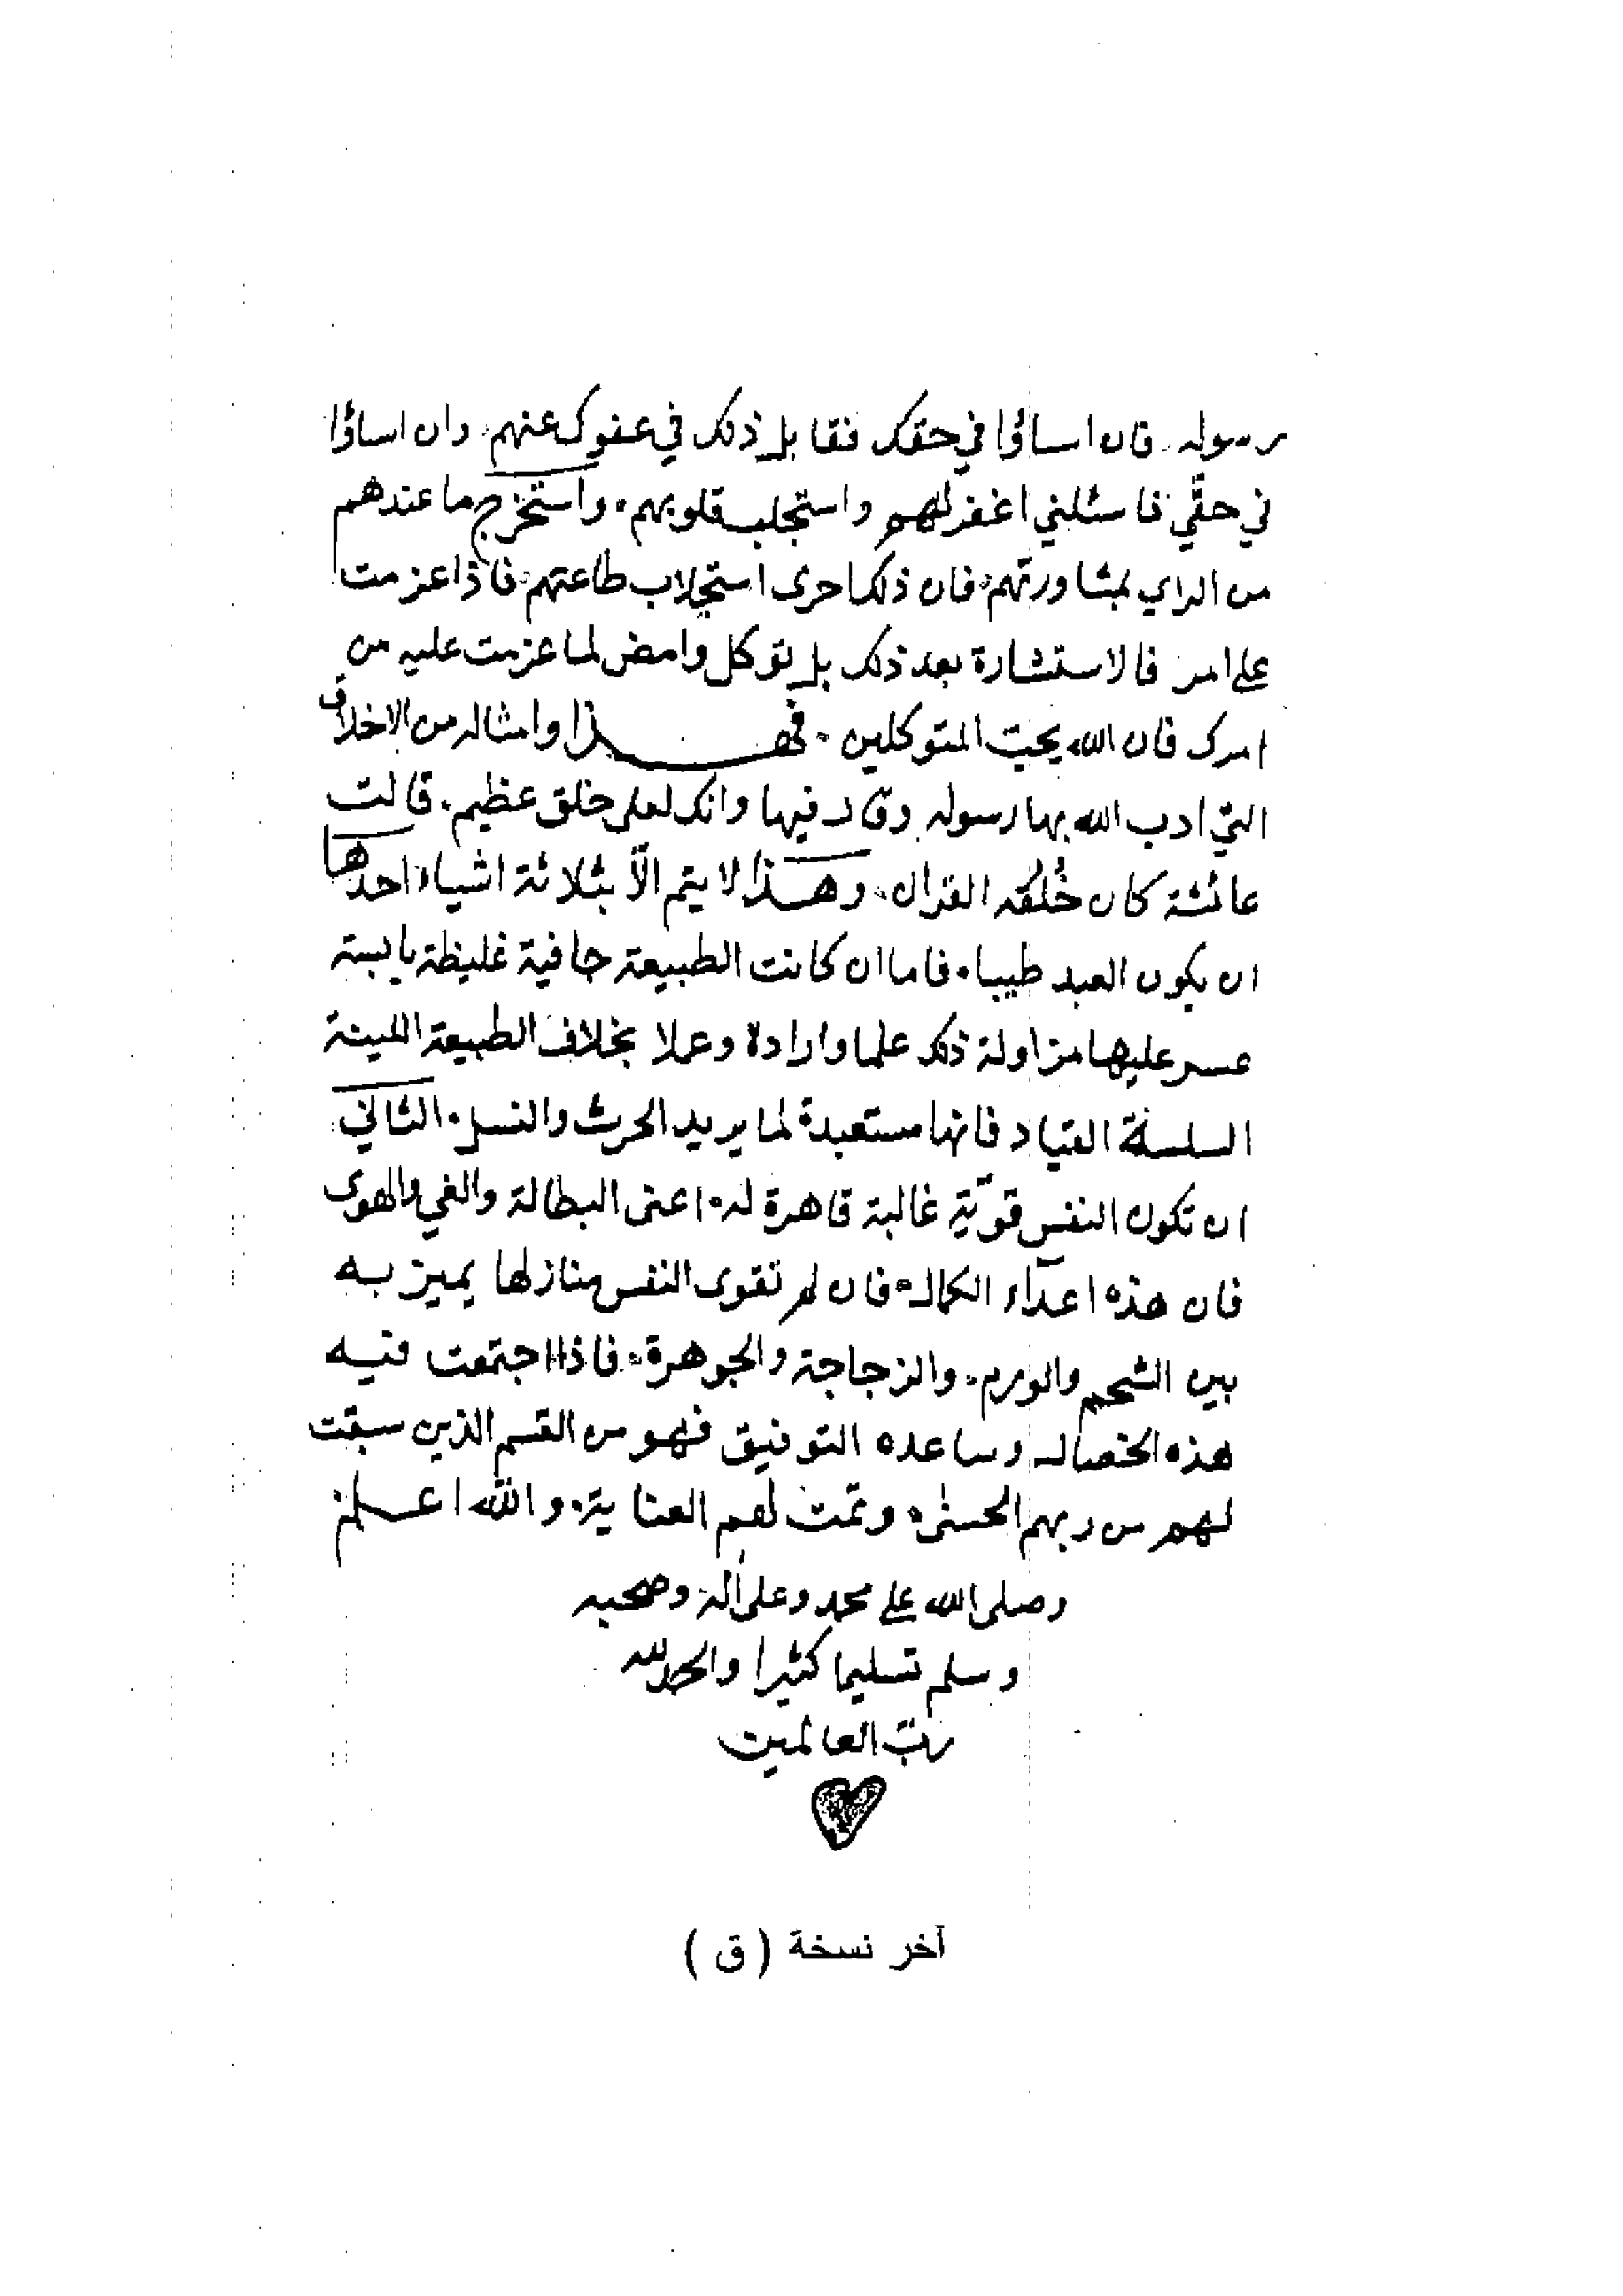 رسوله . فان اساؤا في حقك فقابل ذلك في عفوك عنهم . وان اساؤا
في حقّي فاسئلني اغفر لهم واستجلب قلوبهم . واستخرج ما عندهم
من الراي بمشاورتهم . فان ذلك احرى استجلاب طاعتهم . فاذا عزمت
على امر فالاستشارة بعد ذلك بل توكل وامض لما عزمت عليه من
امرك فان الله يحبّ المتوكلين . فهذا وامثاله من الاخلاق
التي ادب الله بها رسوله وقال فيها وانك لعلى خلق عظيم . قالت
عائشة كان خُلُقه القرآن . وهذا لا يتم الّا بثلاثة اشياء احدها
ان يكون العبد طيبا . فاما ان كانت الطبيعة جافية غليظة يابسة
عسر عليها مزاولة ذلك علما وارادة وعملا بخلاف الطبيعة اللينة
السلسلة القياد فانها مستعبدة لما يريد الحرث والنسل . الثاني
ان تكون النفس قويّة غالبة قاهرة له . اعنى البطالة والغي والهوى
فان هذه اعدآء الكمال . فان لم تقوى النفس منازلها يميز به
بين الشحم والورم . والزجاجة والجوهرة . فاذا اجتمعت فيه
هذه الخصال وساعده التوفيق فهو من القسم الذين سبقت
لهم من ربهم الحسنى . وتمت لهم العناية . والله اعلم
وصلى الله على محمد وعلى آله وصحبه
وسلم تسليما كثيرا والحمد لله
ربّ العالمين
آخر نسخة ( ق )